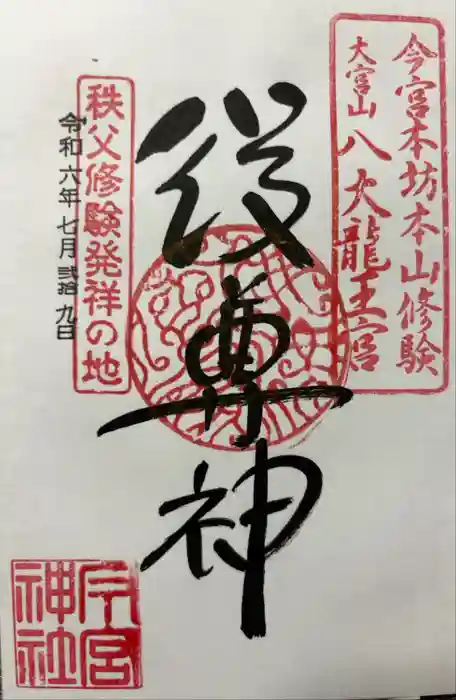 今宮本坊本山修験
大宮山八大龍王宮
役尊神
秩父修験発祥の地
令和六年七月弐拾九日
今宮神社